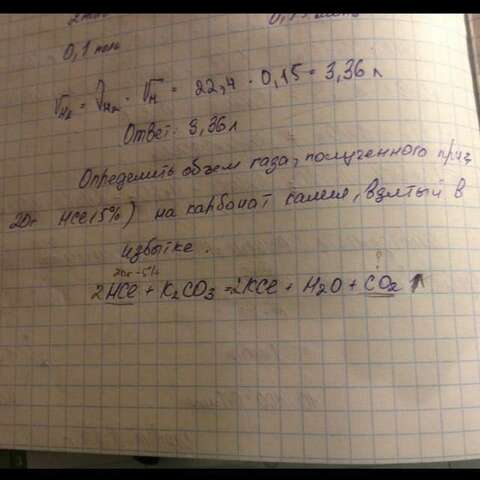 0,1 моль
V H₂ = ϑ H₂ · V H = 22,4 · 0,15 = 3,36 л
Ответ: 3,36 л
Определить объем газа, полученного
20г HCl (5%) на карбонат калия, взятый в
избытке.
20г - 5%
2HCl + K₂CO₃ = 2KCl + H₂O + CO₂ ↑